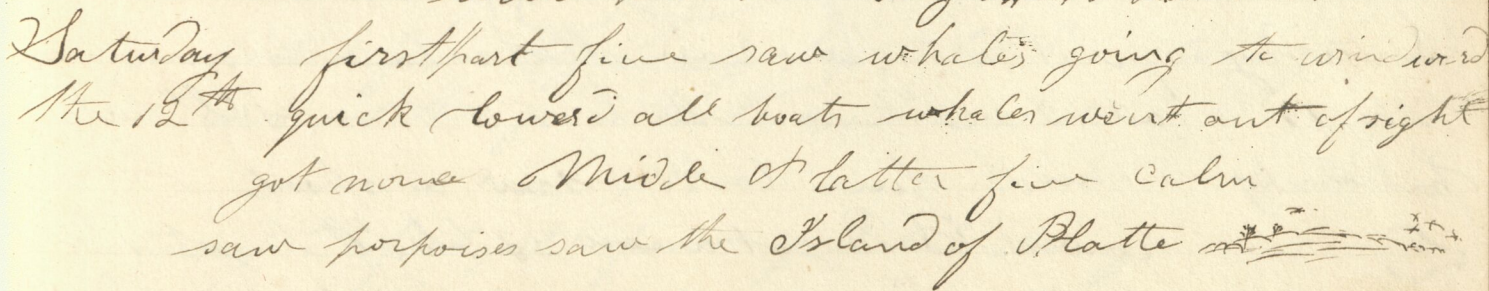 Saturday firstpart fine saw whales going to windward
the 12th quick lowerd all boats whales went out of sight
got none Middle & latter fine calm
saw porpoises saw the Island of Platte